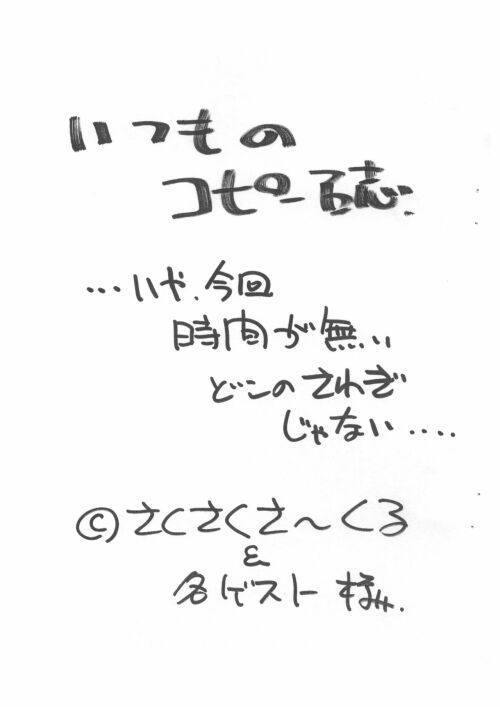 いつもの
コピー誌.
...いや.今回
時間が無い
どこのさわぎ
じゃない....
©さくさくさ～くる
&
各ゲスト様.